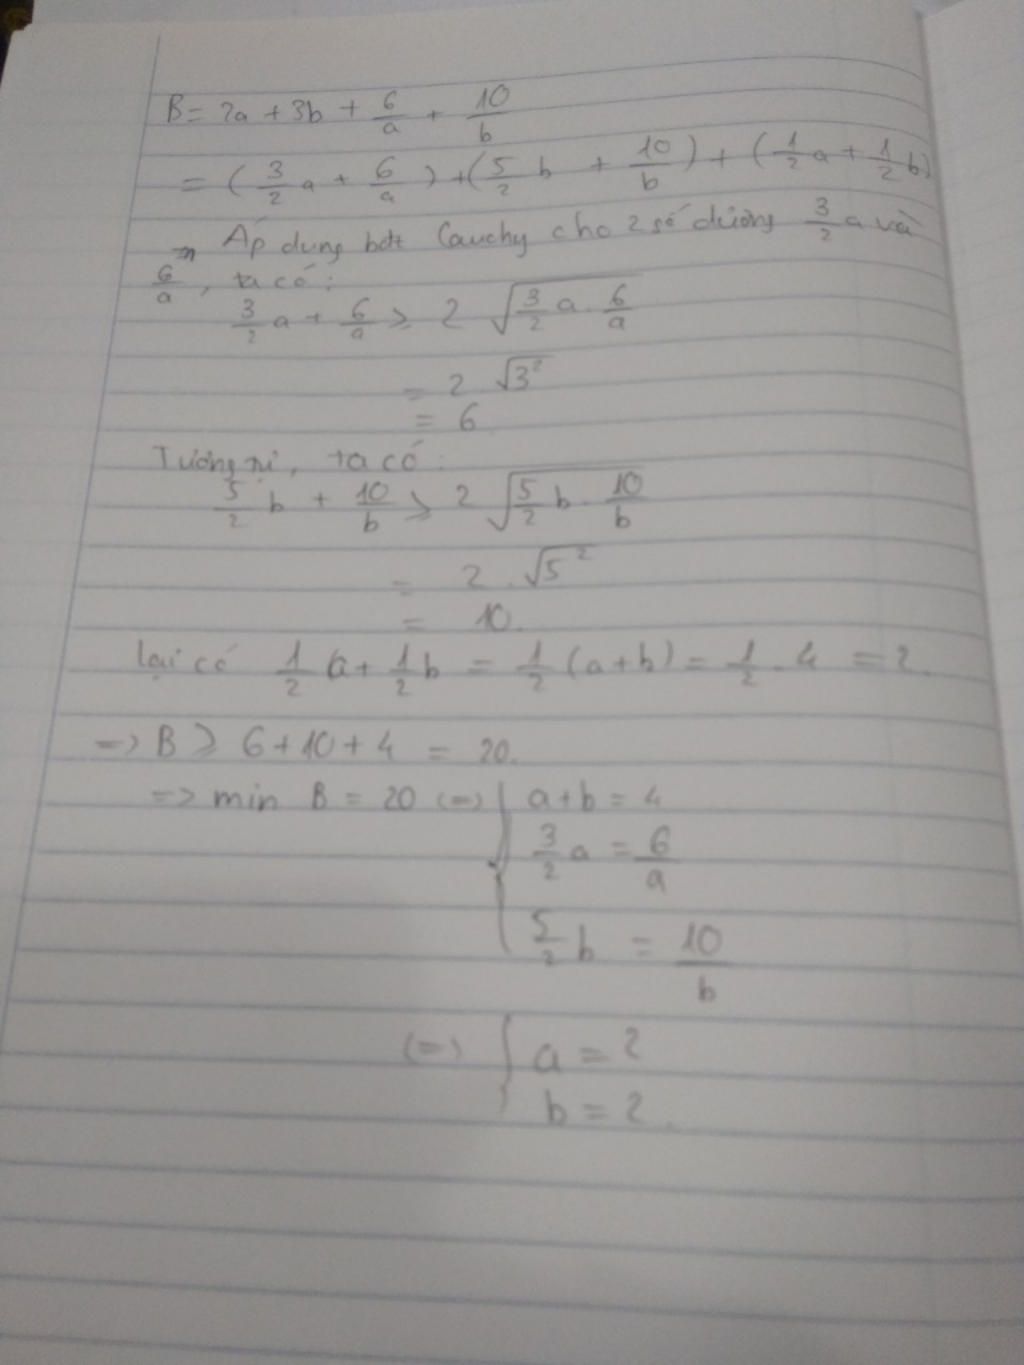 B = 2a + 3b + 6/a + 10/b
= (3/2 a + 6/a) + (5/2 b + 10/b) + (1/2 a + 1/2 b)
Áp dụng bđt Cauchy cho 2 số dương 3/2 a và
6/a, ta có:
3/2 a + 6/a ≥ 2 √(3/2 a . 6/a)
= 2 √3²
= 6
Tương tự, ta có:
5/2 b + 10/b ≥ 2 √(5/2 b . 10/b)
= 2 . √5²
= 10.
lại có 1/2 a + 1/2 b = 1/2 (a+b) = 1/2 . 4 = 2.
=> B ≥ 6 + 10 + 4 = 20.
=> min B = 20 (=) { a + b = 4
3/2 a = 6/a
5/2 b = 10/b
(=) { a = 2
b = 2.